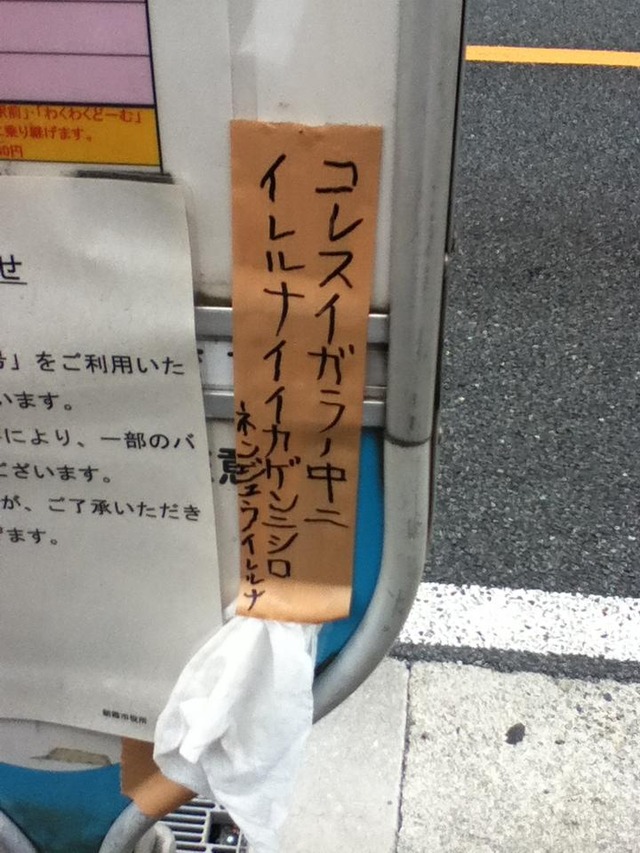 コレスイガラノ中ニ
イレルナイイカゲンニシロ
ネンジュウイレルナ
駅前」・「わくわくどーむ」
乗り継げます。
せ
号」をご利用いた
います。
により、一部のバ
ございます。
が、ご了承いただき
ます。
意
朝霞市役所